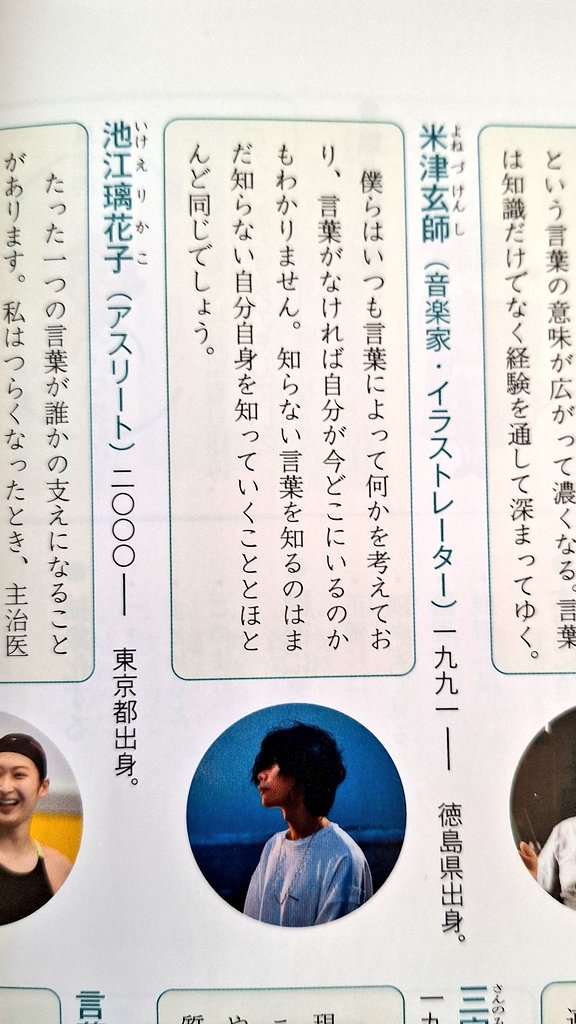 という言葉の意味が広がって濃くなる。言葉
は知識だけでなく経験を通して深まってゆく。
よねづけんし
米津玄師（音楽家・イラストレーター）一九九一― 徳島県出身。
僕らはいつも言葉によって何かを考えてお
り、言葉がなければ自分が今どこにいるのか
もわかりません。知らない言葉を知るのはま
だ知らない自分自身を知っていくこととほと
んど同じでしょう。
いけえりかこ
池江璃花子（アスリート）二〇〇〇― 東京都出身。
たった一つの言葉が誰かの支えになること
があります。私はつらくなったとき、主治医
さんのも
三
一九
現
言葉